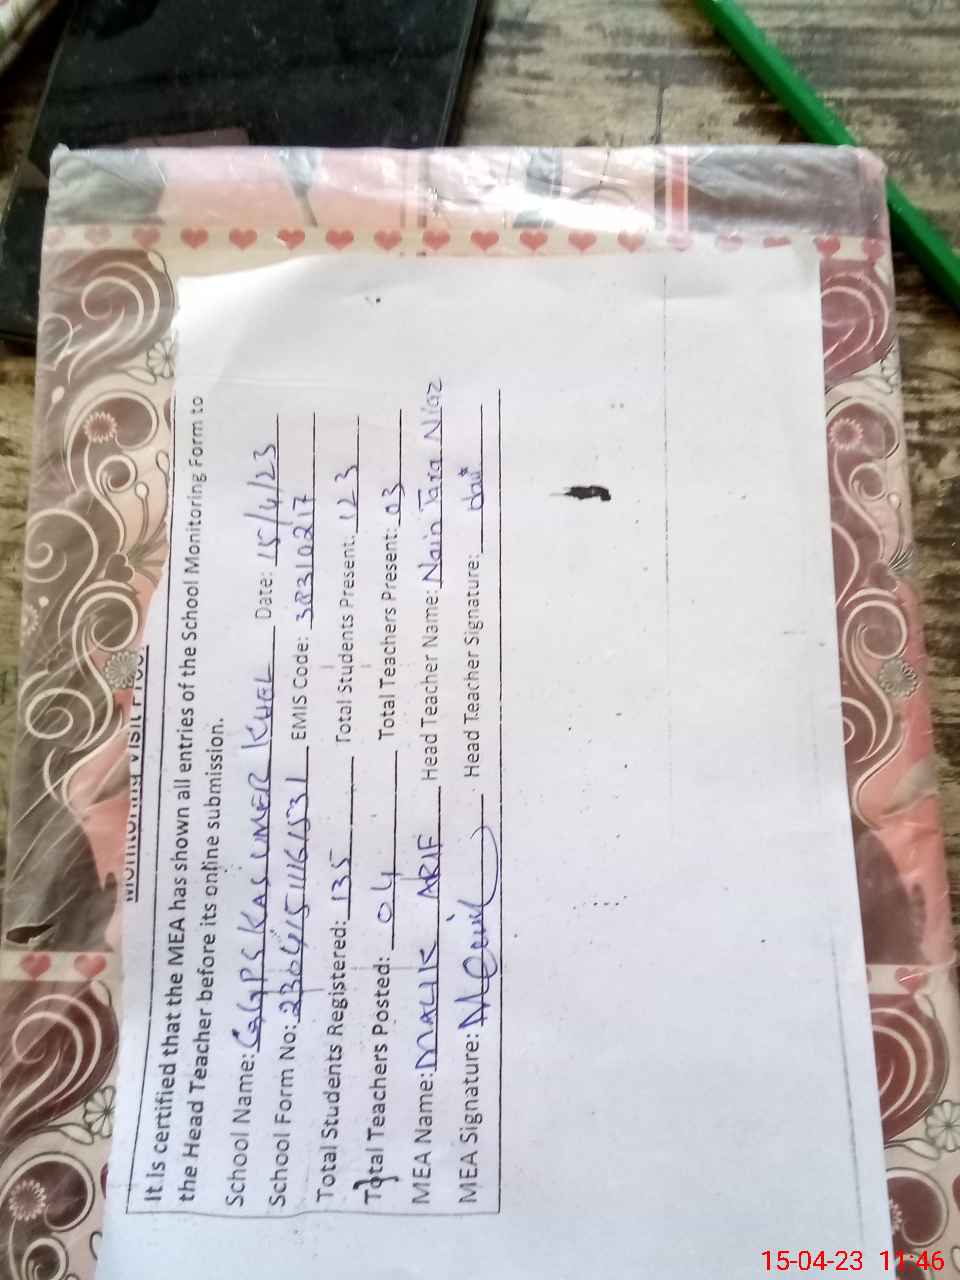 Monitoring Visit Proof
It is certified that the MEA has shown all entries of the School Monitoring Form to
the Head Teacher before its online submission.
School Name: GGPS KAS UMER KHEL Date: 15/4/23
School Form No: EMIS Code: 38310217
Total Students Registered: 135 Total Students Present: 123
Total Teachers Posted: 04 Total Teachers Present: 03
MEA Name: MALIK ARIF Head Teacher Name: Nain Tara Niaz
MEA Signature: Head Teacher Signature:
15-04-23 11:46